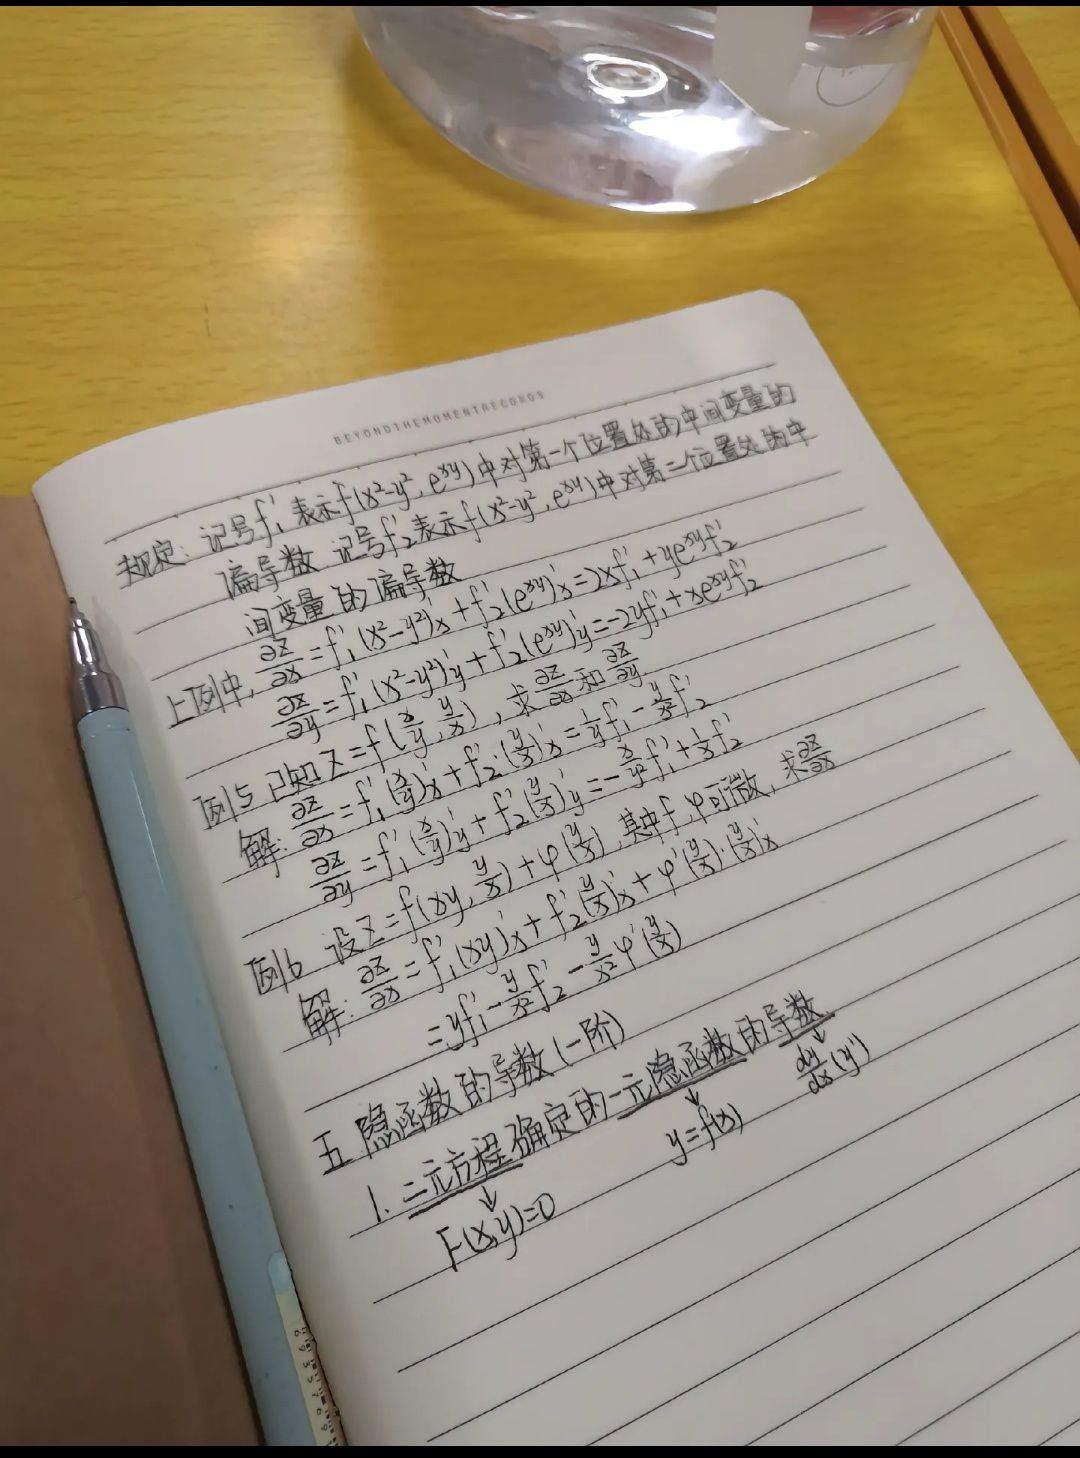 BEYONDTHEMOMENTRECORDS
规定: 记号f₁' 表示f(x²-y², eˣʸ)中对第一个位置处的中间变量的
偏导数 记号f₂'表示f(x²-y², eˣʸ)中对第二个位置处的中
间变量的偏导数
上例中, ∂z/∂x = f₁'(x²-y²)'x + f₂'(eˣʸ)'x = 2xf₁' + yeˣʸf₂'
∂z/∂y = f₁'(x²-y²)'y + f₂'(eˣʸ)'y = -2yf₁' + xeˣʸf₂'
例5 已知 z = f(x/y, y/x), 求 ∂z/∂x 和 ∂z/∂y
解: ∂z/∂x = f₁'(x/y)'x + f₂'·(y/x)'x = 1/y f₁' - y/x² f₂'
∂z/∂y = f₁'(x/y)'y + f₂'(y/x)'y = -x/y² f₁' + 1/x f₂'
例6 设 z = f(xy, y/x) + φ(y/x), 其中 f, φ可微, 求 ∂z/∂x
解: ∂z/∂x = f₁'(xy)'x + f₂'(y/x)'x + φ'(y/x)·(y/x)'x
= yf₁' - y/x² f₂' - y/x² φ'(y/x)
五 隐函数的导数(一阶)
1. 二元方程确定的一元隐函数的导数
↓ ↓ ↓
F(x,y)=0 y=f(x) dy/dx (y')